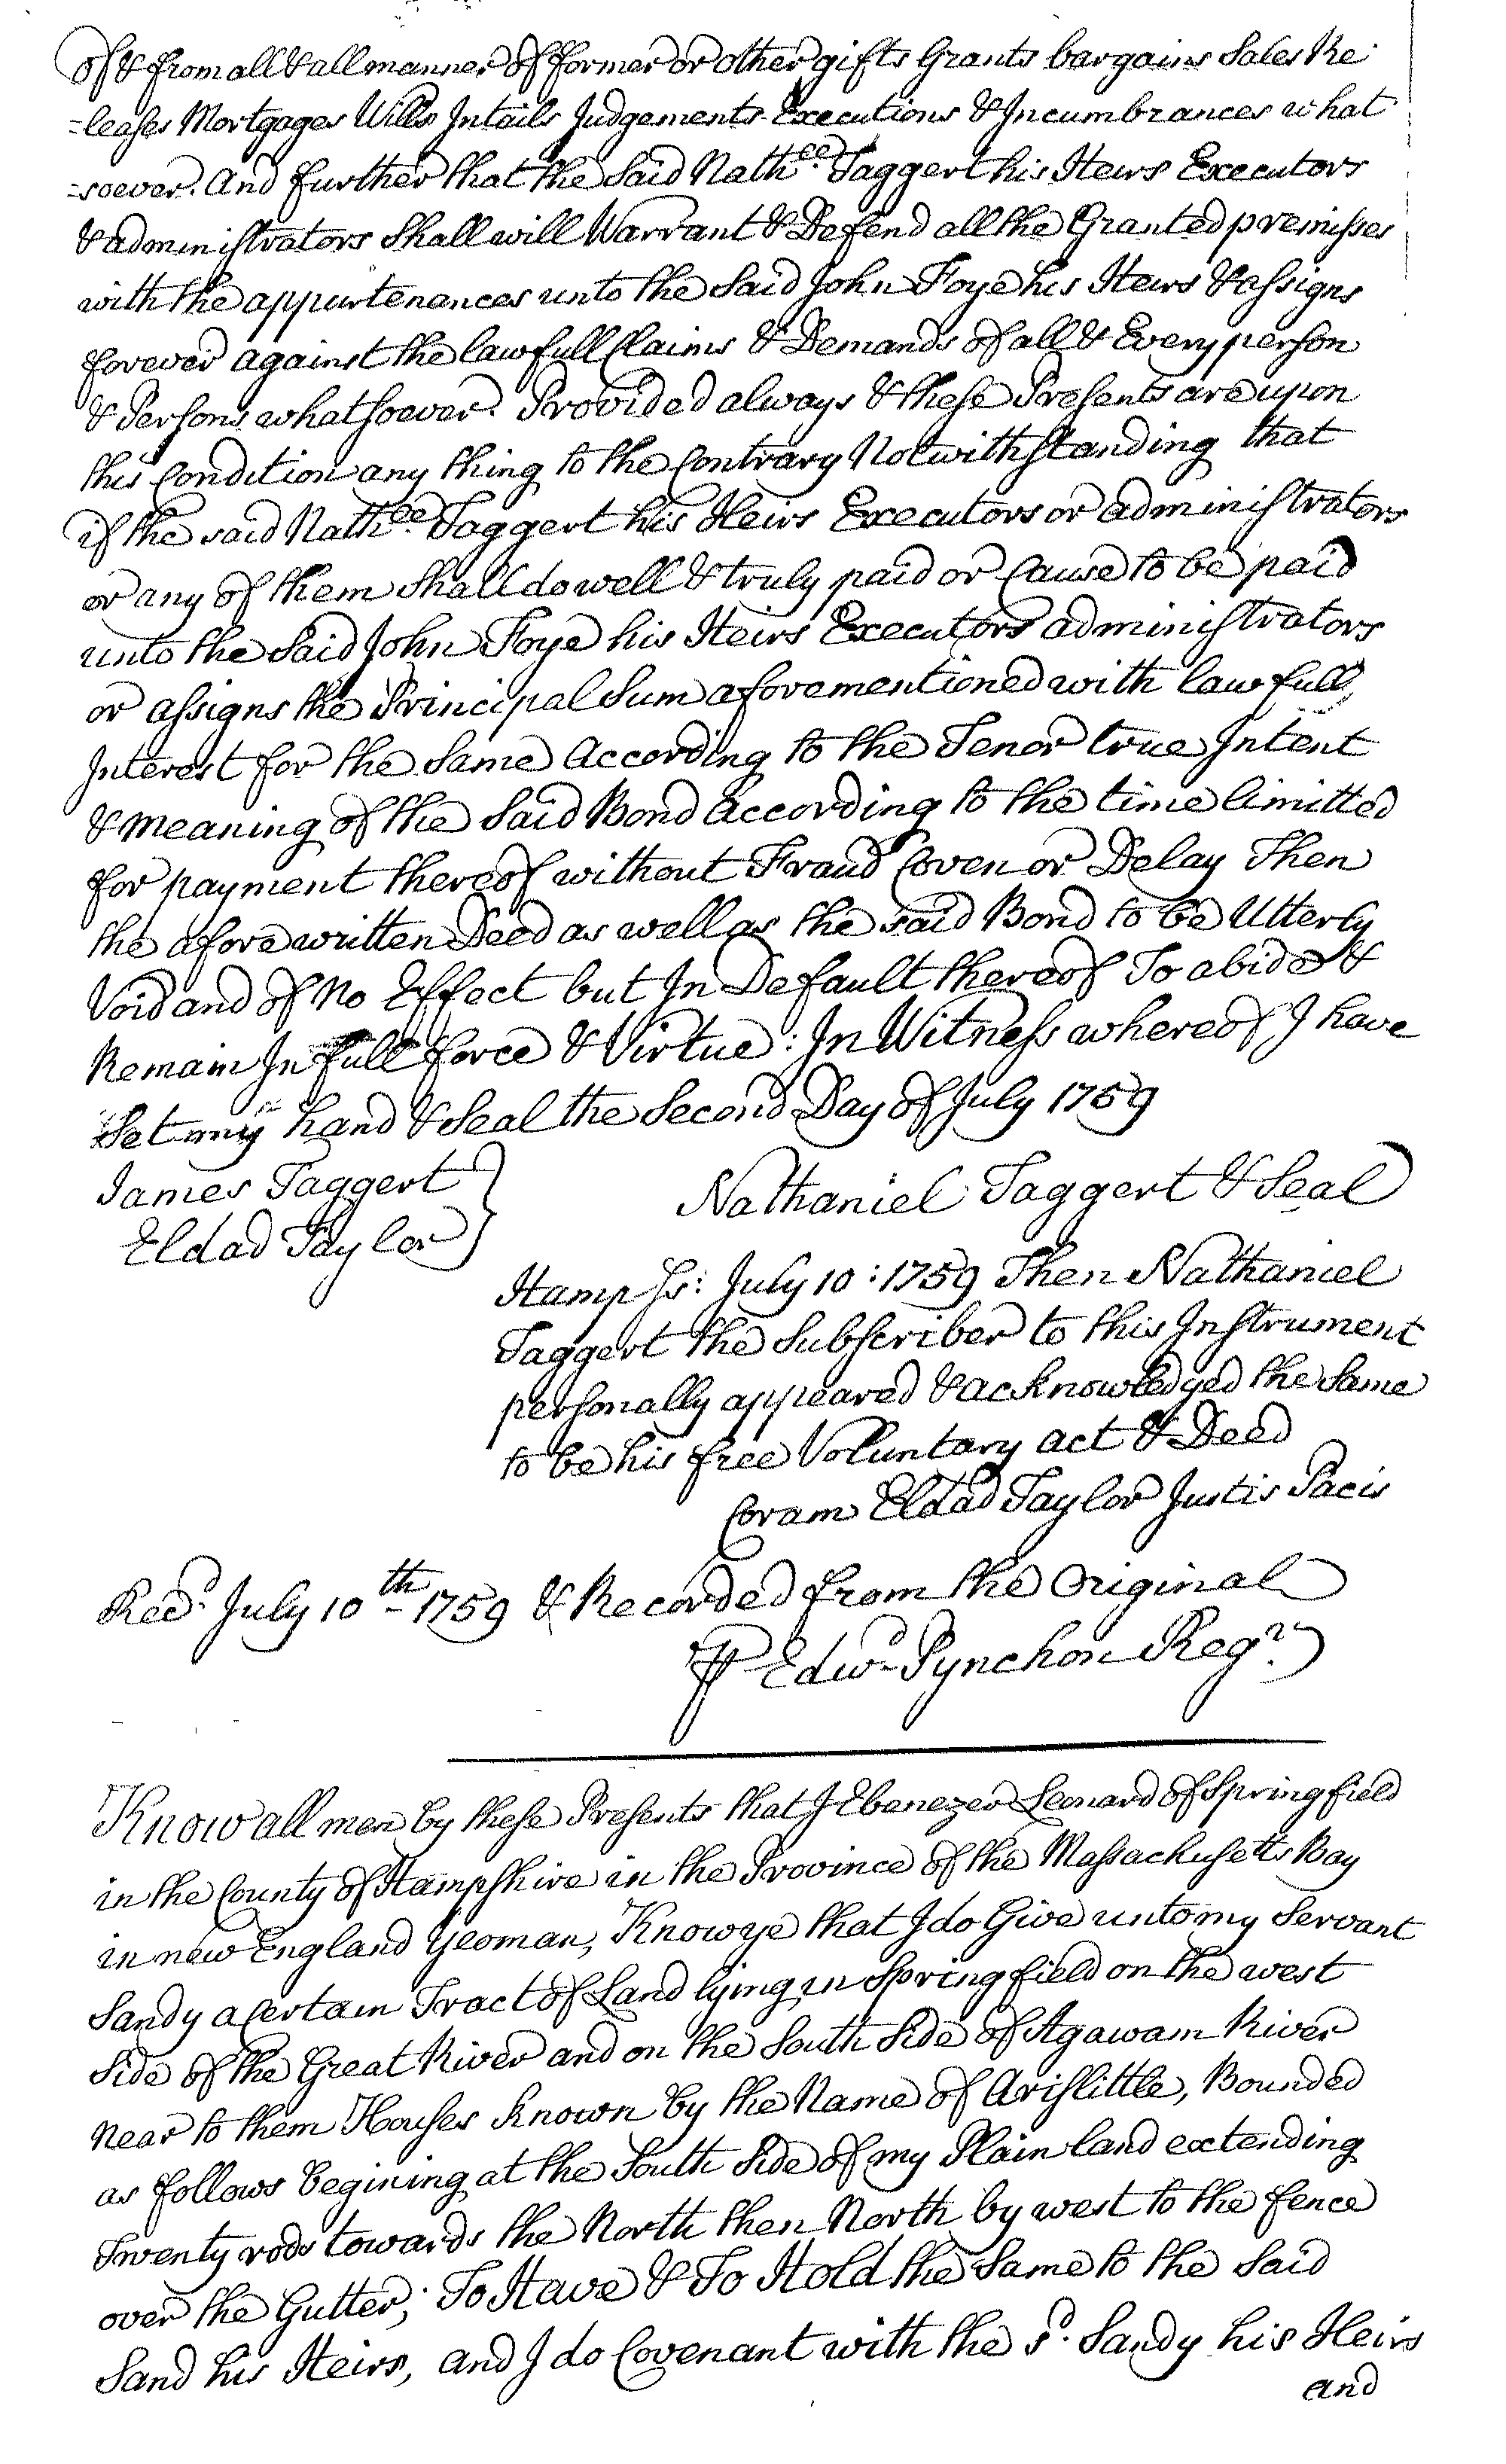 of & from all & all manner of former or other gifts Grants bargains Sales Re
=leases Mortgages Wills Intails Judgements Executions & Incumbrances what
=soever. And further that the Said Nath.ll Taggert his Heirs Executors
& administrators Shall will Warrant & Defend all the Granted premisses
with the appurtenances unto the Said John Foye his Heirs & assigns
forever against the lawfull Claims & Demands of all & Every person
& Persons whatsoever. Provided always & these Presents are upon
this Condition any thing to the Contrary Notwithstanding that
if the said Nath.ll Taggert his Heirs Executors or administrators
or any of them Shall do well & truly paid or Cause to be paid
unto the Said John Foye his Heirs Executors administrators
or assigns the Principal Sum aforementioned with lawfull
Interest for the Same According to the Tenor true Intent
& meaning of the Said Bond According to the time limitted
for payment thereof without Fraud Coven or Delay Then
the afore written Deed as well as the said Bond to be Utterly
Void and of No Effect but In Default thereof To abide &
Remain In full force & Virtue: In Witness whereof I have
Set my hand & Seal the Second Day of July 1759
James Taggert }
Eldad Taylor }
Nathaniel Taggert & Seal
Hamp Ss: July 10: 1759 Then Nathaniel
Taggert the Subscriber to this Instrument
personally appeared & acknowledged the Same
to be his free Voluntary act & Deed
Coram Eldad Taylor Justis Pacis
Recd. July 10th 1759 & Recorded from the Original
℔ Edwd. Pynchon Regr.
Know all men by these Presents that I Ebenezer Leonard of Springfield
in the County of Hampshire in the Province of the Massachusetts Bay
in new England Yeoman, Know ye that I do Give unto my Servant
Sandy a Certain Tract of Land lying in Springfield on the west
Side of the Great River and on the South Side of Agawam River
Near to them Houses known by the Name of Arislittle, Bounded
as follows begining at the South Side of my Plain land extending
Twenty rods towards the North then North by west to the fence
over the Gutter; To Have & To Hold the Same to the Said
Sand his Heirs, and I do Covenant with the sd. Sandy his Heirs
and